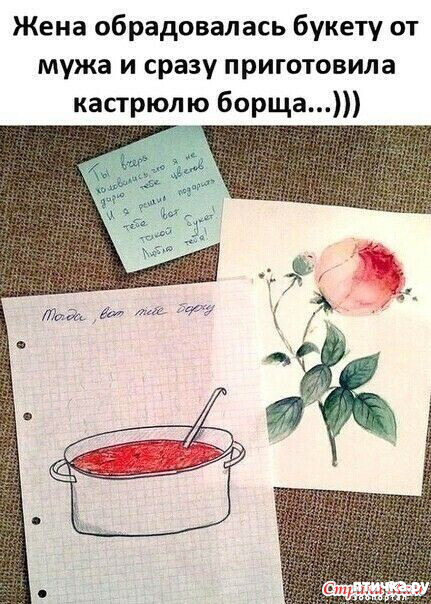 Жена обрадовалась букету от
мужа и сразу приготовила
кастрюлю борща...)))
Ты вчера
жаловалась, что я не
дарю тебе цветов
И я решил подарить
тебе вот
такой букет!
Люблю тебя!
Тогда, вот тебе борщ
птичка.ру